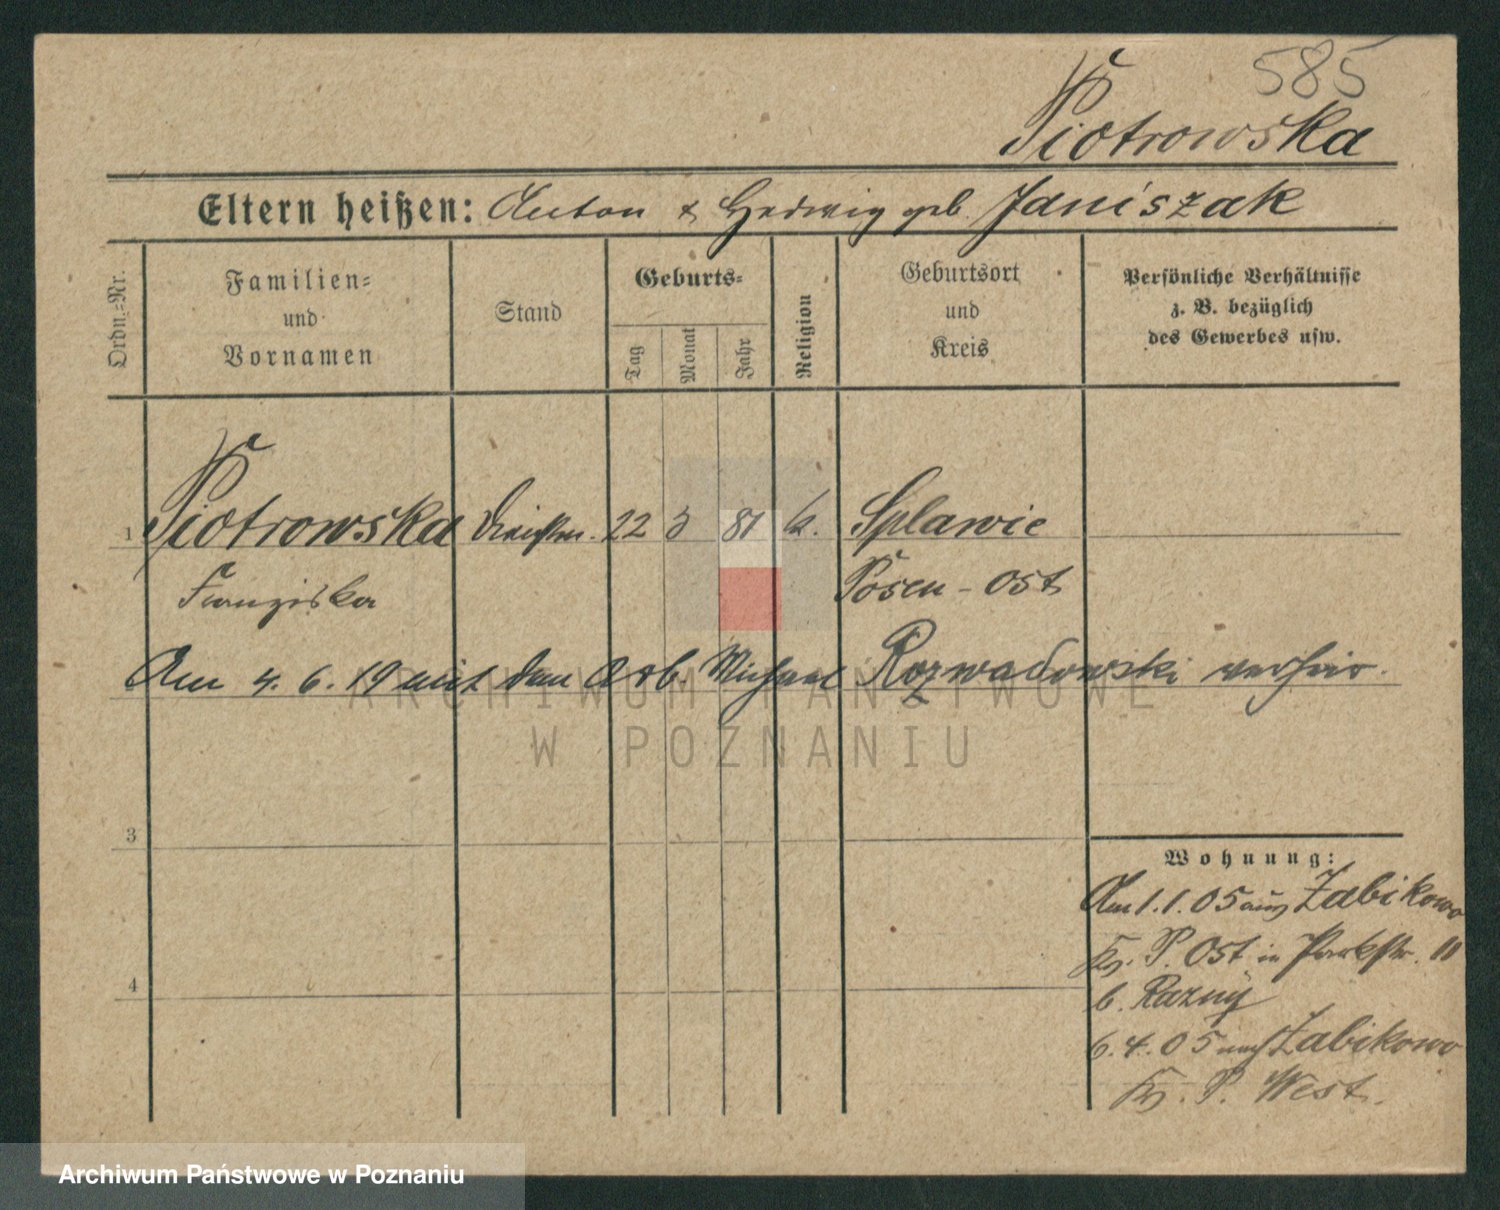 585
Piotrowska
Eltern heißen: Anton & Hedwig geb. Janiszak
Ordn.=Nr.
Familien=
und
Vornamen
Stand
Geburts=
Tag
Monat
Jahr
Religion
Geburtsort
und
Kreis
Persönliche Verhältnisse
z. B. bezüglich
des Gewerbes usw.
1 Piotrowska 22 3 81 k. Splawie
Franziska Posen - Ost
Am 4. 6. 19 mit dem Arb. Michael Rozwadowski verheir.
3
4
Wohnung:
Am 1.1.05 aus Zabikowo
Kr. P. Ost in Parkstr. 11
b. Razny
6.4.05 nach Zabikowo
Kr. P. West.
ARCHIWUM PAŃSTWOWE
W POZNANIU
Archiwum Państwowe w Poznaniu